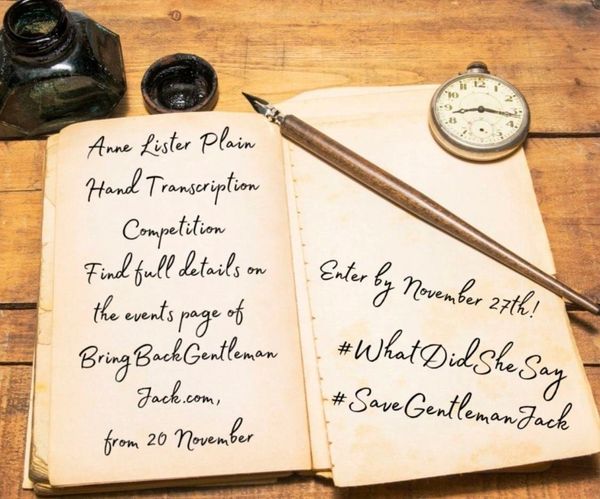 Anne Lister Plain
Hand Transcription
Competition
Find full details on
the events page of
BringBackGentleman
Jack.com,
from 20 November
Enter by November 27th!
#WhatDidSheSay
#SaveGentlemanJack